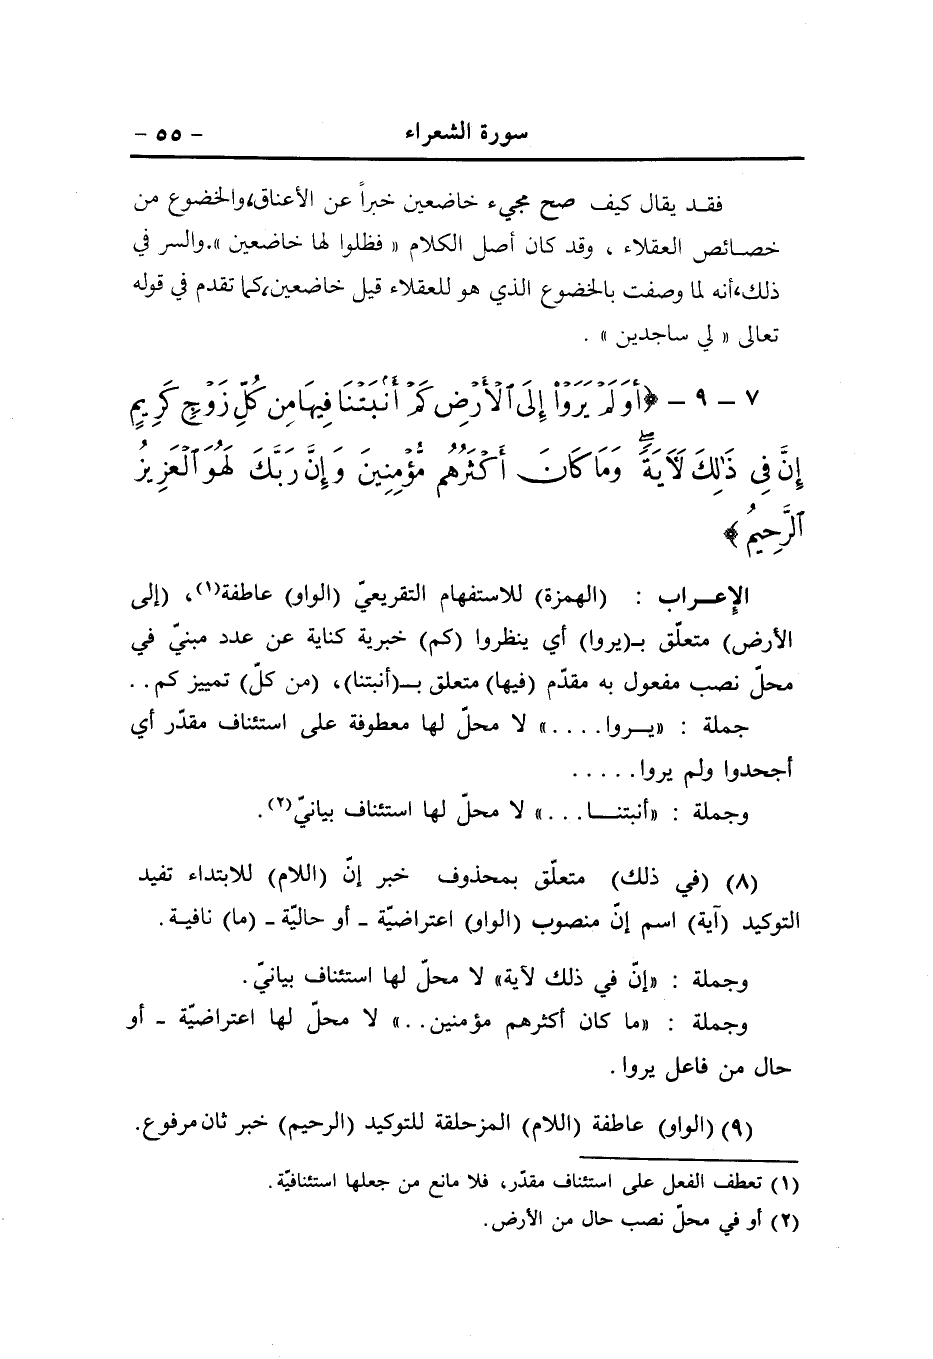 سورة الشعراء - ٥٥ -
فقـد يقال كيف صح مجيء خاضعين خبراً عن الأعناق،والخضوع من
خصـائص العقلاء ، وقد كان أصل الكلام « فظلوا لها خاضعين ».والسر في
ذلك،أنه لما وصفت بالخضوع الذي هو للعقلاء قيل خاضعين،كما تقدم في قوله
تعالى « لي ساجدين » .
٧ - ٩ - ﴿أَوَلَمْ يَرَوْاْ إِلَى ٱلْأَرْضِ كَمْ أَنۢبَتْنَا فِيهَا مِن كُلِّ زَوْجٍ كَرِيمٍ
إِنَّ فِى ذَٰلِكَ لَأٓيَةً ۖ وَمَا كَانَ أَكْثَرُهُم مُّؤْمِنِينَ وَإِنَّ رَبَّكَ لَهُوَ ٱلْعَزِيزُ
ٱلرَّحِيمُ﴾
الإعـــراب : (الهمزة) للاستفهام التقريعيّ (الواو) عاطفة(١)، (إلى
الأرض) متعلّق بـ(يروا) أي ينظروا (كم) خبرية كناية عن عدد مبنيّ في
محلّ نصب مفعول به مقدّم (فيها) متعلق بــ(أنبتنا)، (من كلّ) تمييز كم..
جملة : «يــروا....» لا محلّ لها معطوفة على استئناف مقدّر أي
أجحدوا ولم يروا.....
وجملة : «أنبتنــا...» لا محلّ لها استئناف بيانيّ(٢).
(٨) (في ذلك) متعلّق بمحذوف خبر إنّ (اللام) للابتداء تفيد
التوكيد (آية) اسم إنّ منصوب (الواو) اعتراضيّة ـ أو حاليّة ـ (ما) نافيـة.
وجملة : «إنّ في ذلك لآية» لا محلّ لها استئناف بيانيّ.
وجملة : «ما كان أكثرهم مؤمنين..» لا محلّ لها اعتراضيّة ـ أو
حال من فاعل يروا.
(٩) (الواو) عاطفة (اللام) المزحلقة للتوكيد (الرحيم) خبر ثان مرفوع.
(١) تعطف الفعل على استئناف مقدّر، فلا مانع من جعلها استئنافيّة.
(٢) أو في محلّ نصب حال من الأرض.